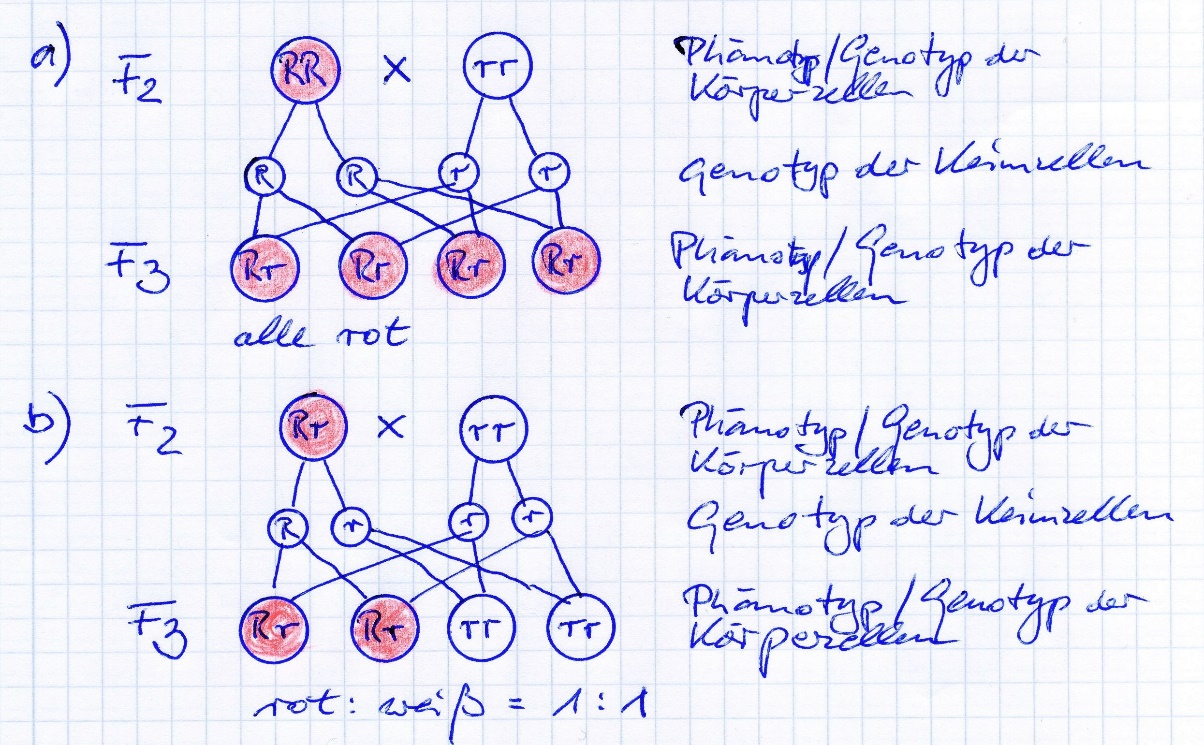 a) F2 RR x rr Phänotyp/Genotyp der
Körperzellen
R R r r Genotyp der Keimzellen
F3 Rr Rr Rr Rr Phänotyp/Genotyp der
Körperzellen
alle rot
b) F2 Rr x rr Phänotyp/Genotyp der
Körperzellen
R r r r Genotyp der Keimzellen
F3 Rr Rr rr rr Phänotyp/Genotyp der
Körperzellen
rot: weiß = 1:1